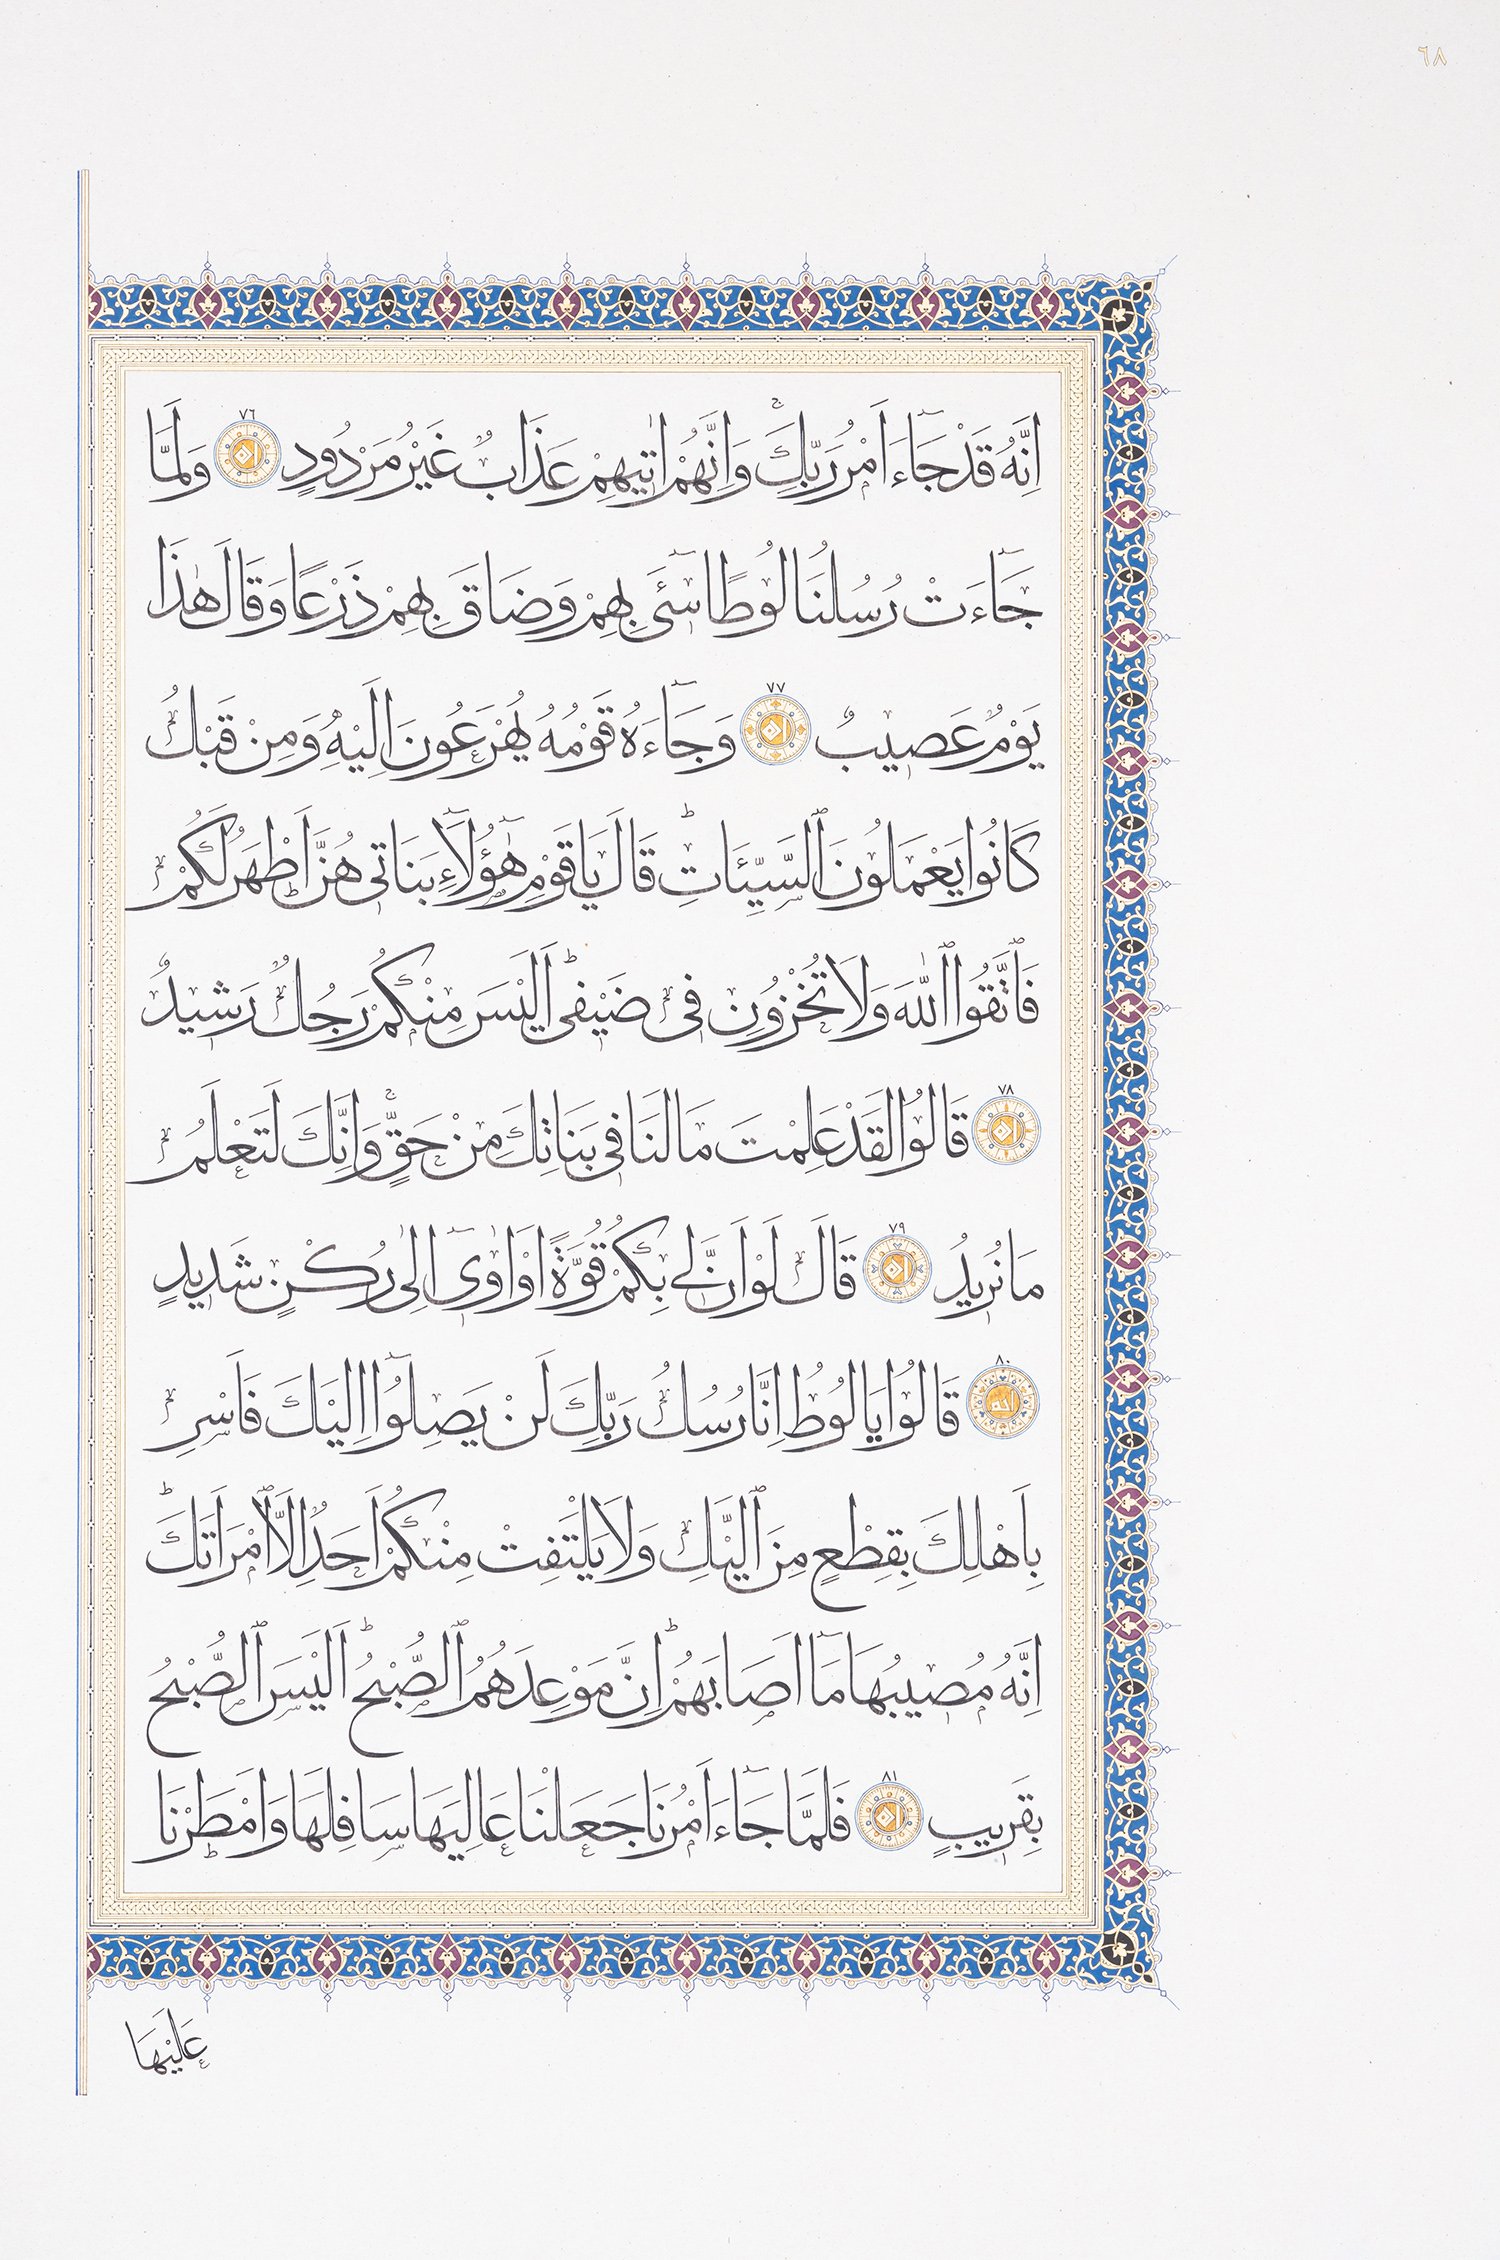 ٦٨
اِنَّهُ قَدْ جَٓاءَ اَمْرُ رَبِّكَۚ وَاِنَّهُمْ اٰتٖيهِمْ عَذَابٌ غَيْرُ مَرْدُودٍ ٧٦ وَلَمَّا
جَٓاءَتْ رُسُلُنَا لُوطًا سٖٓئَ بِهِمْ وَضَاقَ بِهِمْ ذَرْعًا وَقَالَ هٰذَا
يَوْمٌ عَصٖيبٌ ٧٧ وَجَٓاءَهُ قَوْمُهُ يُهْرَعُونَ اِلَيْهِ وَمِنْ قَبْلُ
كَانُوا يَعْمَلُونَ ٱلسَّيِّـَٔاتِؕ قَالَ يَا قَوْمِ هٰٓؤُلَٓاءِ بَنَاتٖى هُنَّ اَطْهَرُ لَكُمْ
فَاتَّقُوا ٱللّٰهَ وَلَا تُخْزُونِ فٖى ضَيْفٖىؕ اَلَيْسَ مِنْكُمْ رَجُلٌ رَشٖيدٌ
٧٨ قَالُوا لَقَدْ عَلِمْتَ مَا لَنَا فٖى بَنَاتِكَ مِنْ حَقٍّۚ وَاِنَّكَ لَتَعْلَمُ
مَا نُرٖيدُ ٧٩ قَالَ لَوْ اَنَّ لٖى بِكُمْ قُوَّةً اَوْ اٰوٖٓى اِلٰى رُكْنٍ شَدٖيدٍ
٨٠ قَالُوا يَا لُوطُ اِنَّا رُسُلُ رَبِّكَ لَنْ يَصِلُٓوا اِلَيْكَ فَاَسْرِ
بِاَهْلِكَ بِقِطْعٍ مِنَ ٱلَّيْلِ وَلَا يَلْتَفِتْ مِنْكُمْ اَحَدٌ اِلَّا ٱمْرَاَتَكَؕ
اِنَّهُ مُصٖيبُهَا مَٓا اَصَابَهُمْؕ اِنَّ مَوْعِدَهُمُ ٱلصُّبْحُؕ اَلَيْسَ ٱلصُّبْحُ
بِقَرٖيبٍ ٨١ فَلَمَّا جَٓاءَ اَمْرُنَا جَعَلْنَا عَالِيَهَا سَافِلَهَا وَاَمْطَرْنَا
عَلَيْهَا